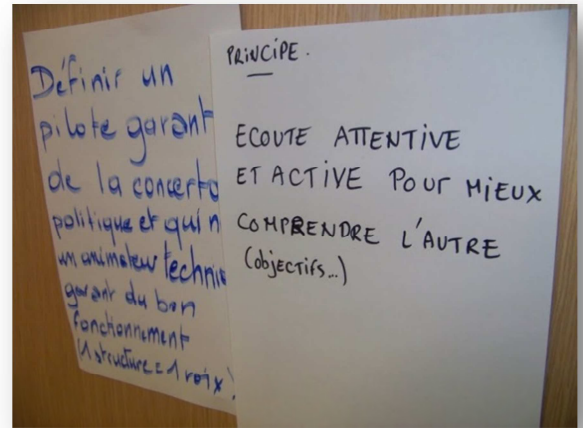 Définir un
pilote garant
de la concerta
politique et qui n
un animateur techni
garant du bon
fonctionnement
(1 structure = 1 voix)
PRiNCiPE.
ECOUTE ATTENTIVE
ET ACTiVE POUr MiEUX
COMPRENDRE L'AUTRE
(objectifs...)